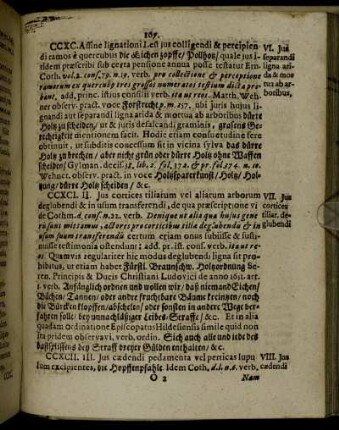 107.
CCXC. Affine lignationi 1. est jus colligendi & percipien-
di ramos è quercubus die Eichen zopffe / Pollholz / quale jus i-
isdem præscribi sub certa pensione annua posse testatur Ern.
Coth. vol. 2. cons. 79. n. 19. verb. pro collectione & perceptione
ramorum ex quercub. tres grossos numeratos testium dicta pro-
bant, add. princ. istius consilii verb. ita ut reos. Matth. Weh-
ner observ. pract. voce Forstrecht p. m. 157. ubi juris hujus li-
gnandi aut separandi ligna arida & mortua ab arboribus dürre
Holtz zu scheiden / ut & juris defalcandi graminis, grasens Ge-
rechtigkeit mentionem facit. Hodie etiam consuetudine fere
obtinuit, in subditis concessum sit in vicina sylva das dürre
Holtz zu brechen / aber nicht grün oder dürre Holtz ohne Waffen
scheiden / Gylman. decis. 18. lib. 2. fol. 372. & pr. fol. 174. n. 10.
Wehner. observ. pract. in voce Holtzsparerkunst / Holtz / Hol-
tzung / dürre Holtz scheiden / &c.
CCXCI. II. Jus cortices tiliarum vel aliarum arborum
deglubendi & in usum transferendi, de qua præscriptione vi
Cothm. d. cons. n. 22. verb. Denique ut alia qua hujus gene-
ris sunt mittamus, actores pro corticibus tilia deglubendis & in
usum suum transferendis certum etiam onus subiisse & sustinuisse
testimonia ostendunt: add. pr. ist. cons. verb. ita ut re-
os. Quamvis regulariter hic modus deglubendi ligna sit pro-
hibitus, ut etiam habet Fürstl. Braunschw. Holtzordnung Se-
ren. Principis & Ducis Christiani Ludovici de anno 1651. arti.
verb. Anfänglich ordnen und wollen wir / daß niemand Eichen /
Büchen / Tannen / oder andre fruchtbare Bäume kreintzen / noch
die Burcken klopffen / abschelen / oder sonsten in andere Wege ver-
fahren solle / bey unnachläßiger Leibes-Straffe / &c. Et in alia
quidam Ordinatione Episcopatus Hildesiensis simile quid non
ita pridem observavi, verb. ordin. Sich auch alle und jede des
bastschlissens bey Straff dreyer Gülden enthalten / & c.
CCXCII. III. Jus cædendi pedamenta vel perticas lupu-
lum excipientes, die Hopffenpfahle. Idem Coth. d. l. n. a. verb.
O 2
Nam
VI. Jus
separandi
ligna ari-
da & mor-
tua ab ar-
boribus,
VII. Jus
cortices
tiliar. de-
glubendi
VIII. Jus
cædendi